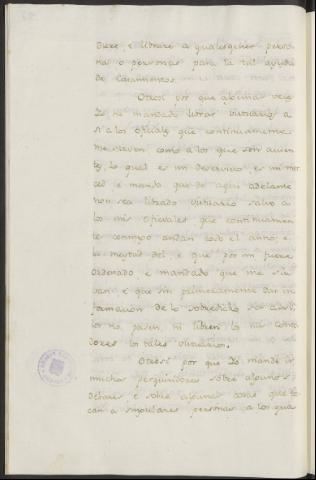 diere, e librare a qualesquier perso-
na o personas para la tal ayuda
de casamientos.
Otrosi por que algunas veces
Yo he mandado librar vistuario a
si a los oficiales que continuamente
me sirven como a los que son ausen-
tes, lo qual es mi deservicio es mi mer-
ced e mando que de aqui adelante
non sea librado vistuario salvo a
los mis oficiales que continuamen-
te conmigo andan todo el anno, e
la meytad del, e que por mi fuere
ordenado, e mandado que me sir-
van e que sin primeramente dar in-
formacion de lo sobredicho
los non pasen, ni libren los mis conta-
dores los tales vistuarios.
Otrosi por que Yo mande ir
muchos pesquisidores sobre algunos
debates, e sobre algunas cosas que to-
can a singulares personas a los qua-